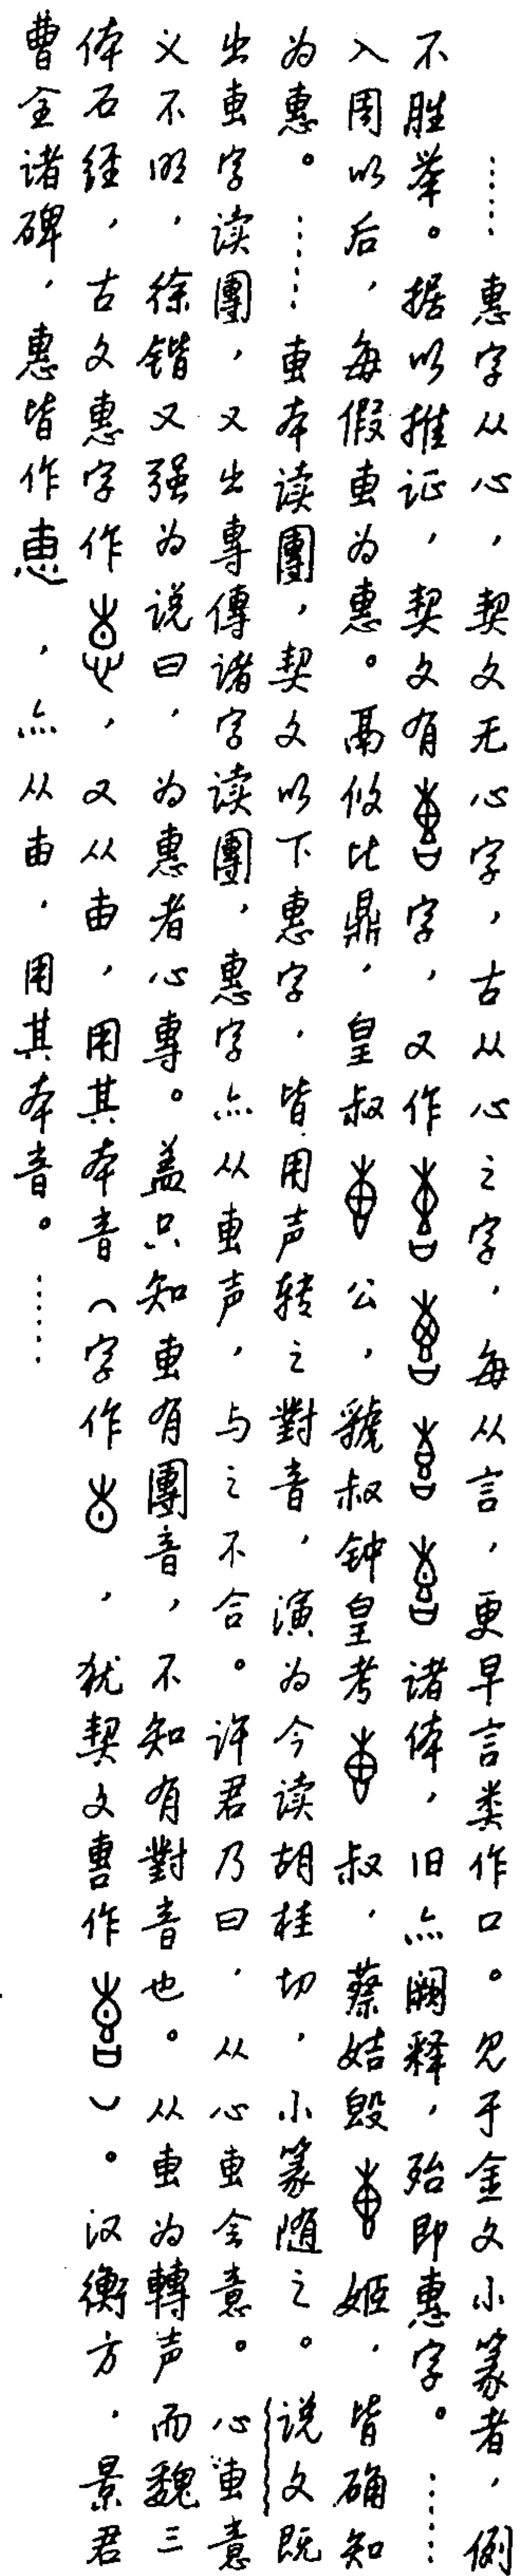 ……惠字从心，契文无心字，古从心之字，每从言，更早言类作口。见于金文小篆者，例
不胜举。据以推证，契文有字，又作诸体，旧亦阙释，殆即惠字。……
入周以后，每假叀为惠。鬲攸比鼎，皇叔公，虢叔钟皇考叔，蔡姞𣪘姬，皆确知
为惠。……叀本读團，契文以下惠字，皆用声转之對音，演为今读胡桂切，小篆随之。说文既
出叀字读團，又出專傳诸字读團，惠字亦从叀声，与之不合。许君乃曰，从心叀会意。心叀意
义不明，徐锴又强为说曰，为惠者心專。盖只知叀有團音，不知有對音也。从叀为轉声而魏三
体石经，古文惠字作，又从甶，用其本音（字作，犹契文𠹴作）。汉衡方，景君
曹全诸碑，惠皆作恵，亦从甶，用其本音。……